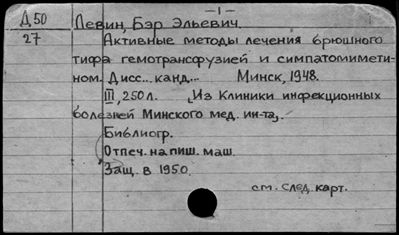 -1-
Д 50
27
Левин, Бэр Эльевич.
Активные методы лечения брюшного
тифа гемотрансфузией и симпатомимети-
ном. Дисс... канд... Минск, 1948.
III, 250 л. [Из Клиники инфекционных
болезней Минского мед. ин-та].
Библиогр.
Отпеч. на пиш. маш.
Защ. в 1950.
см. след. карт.